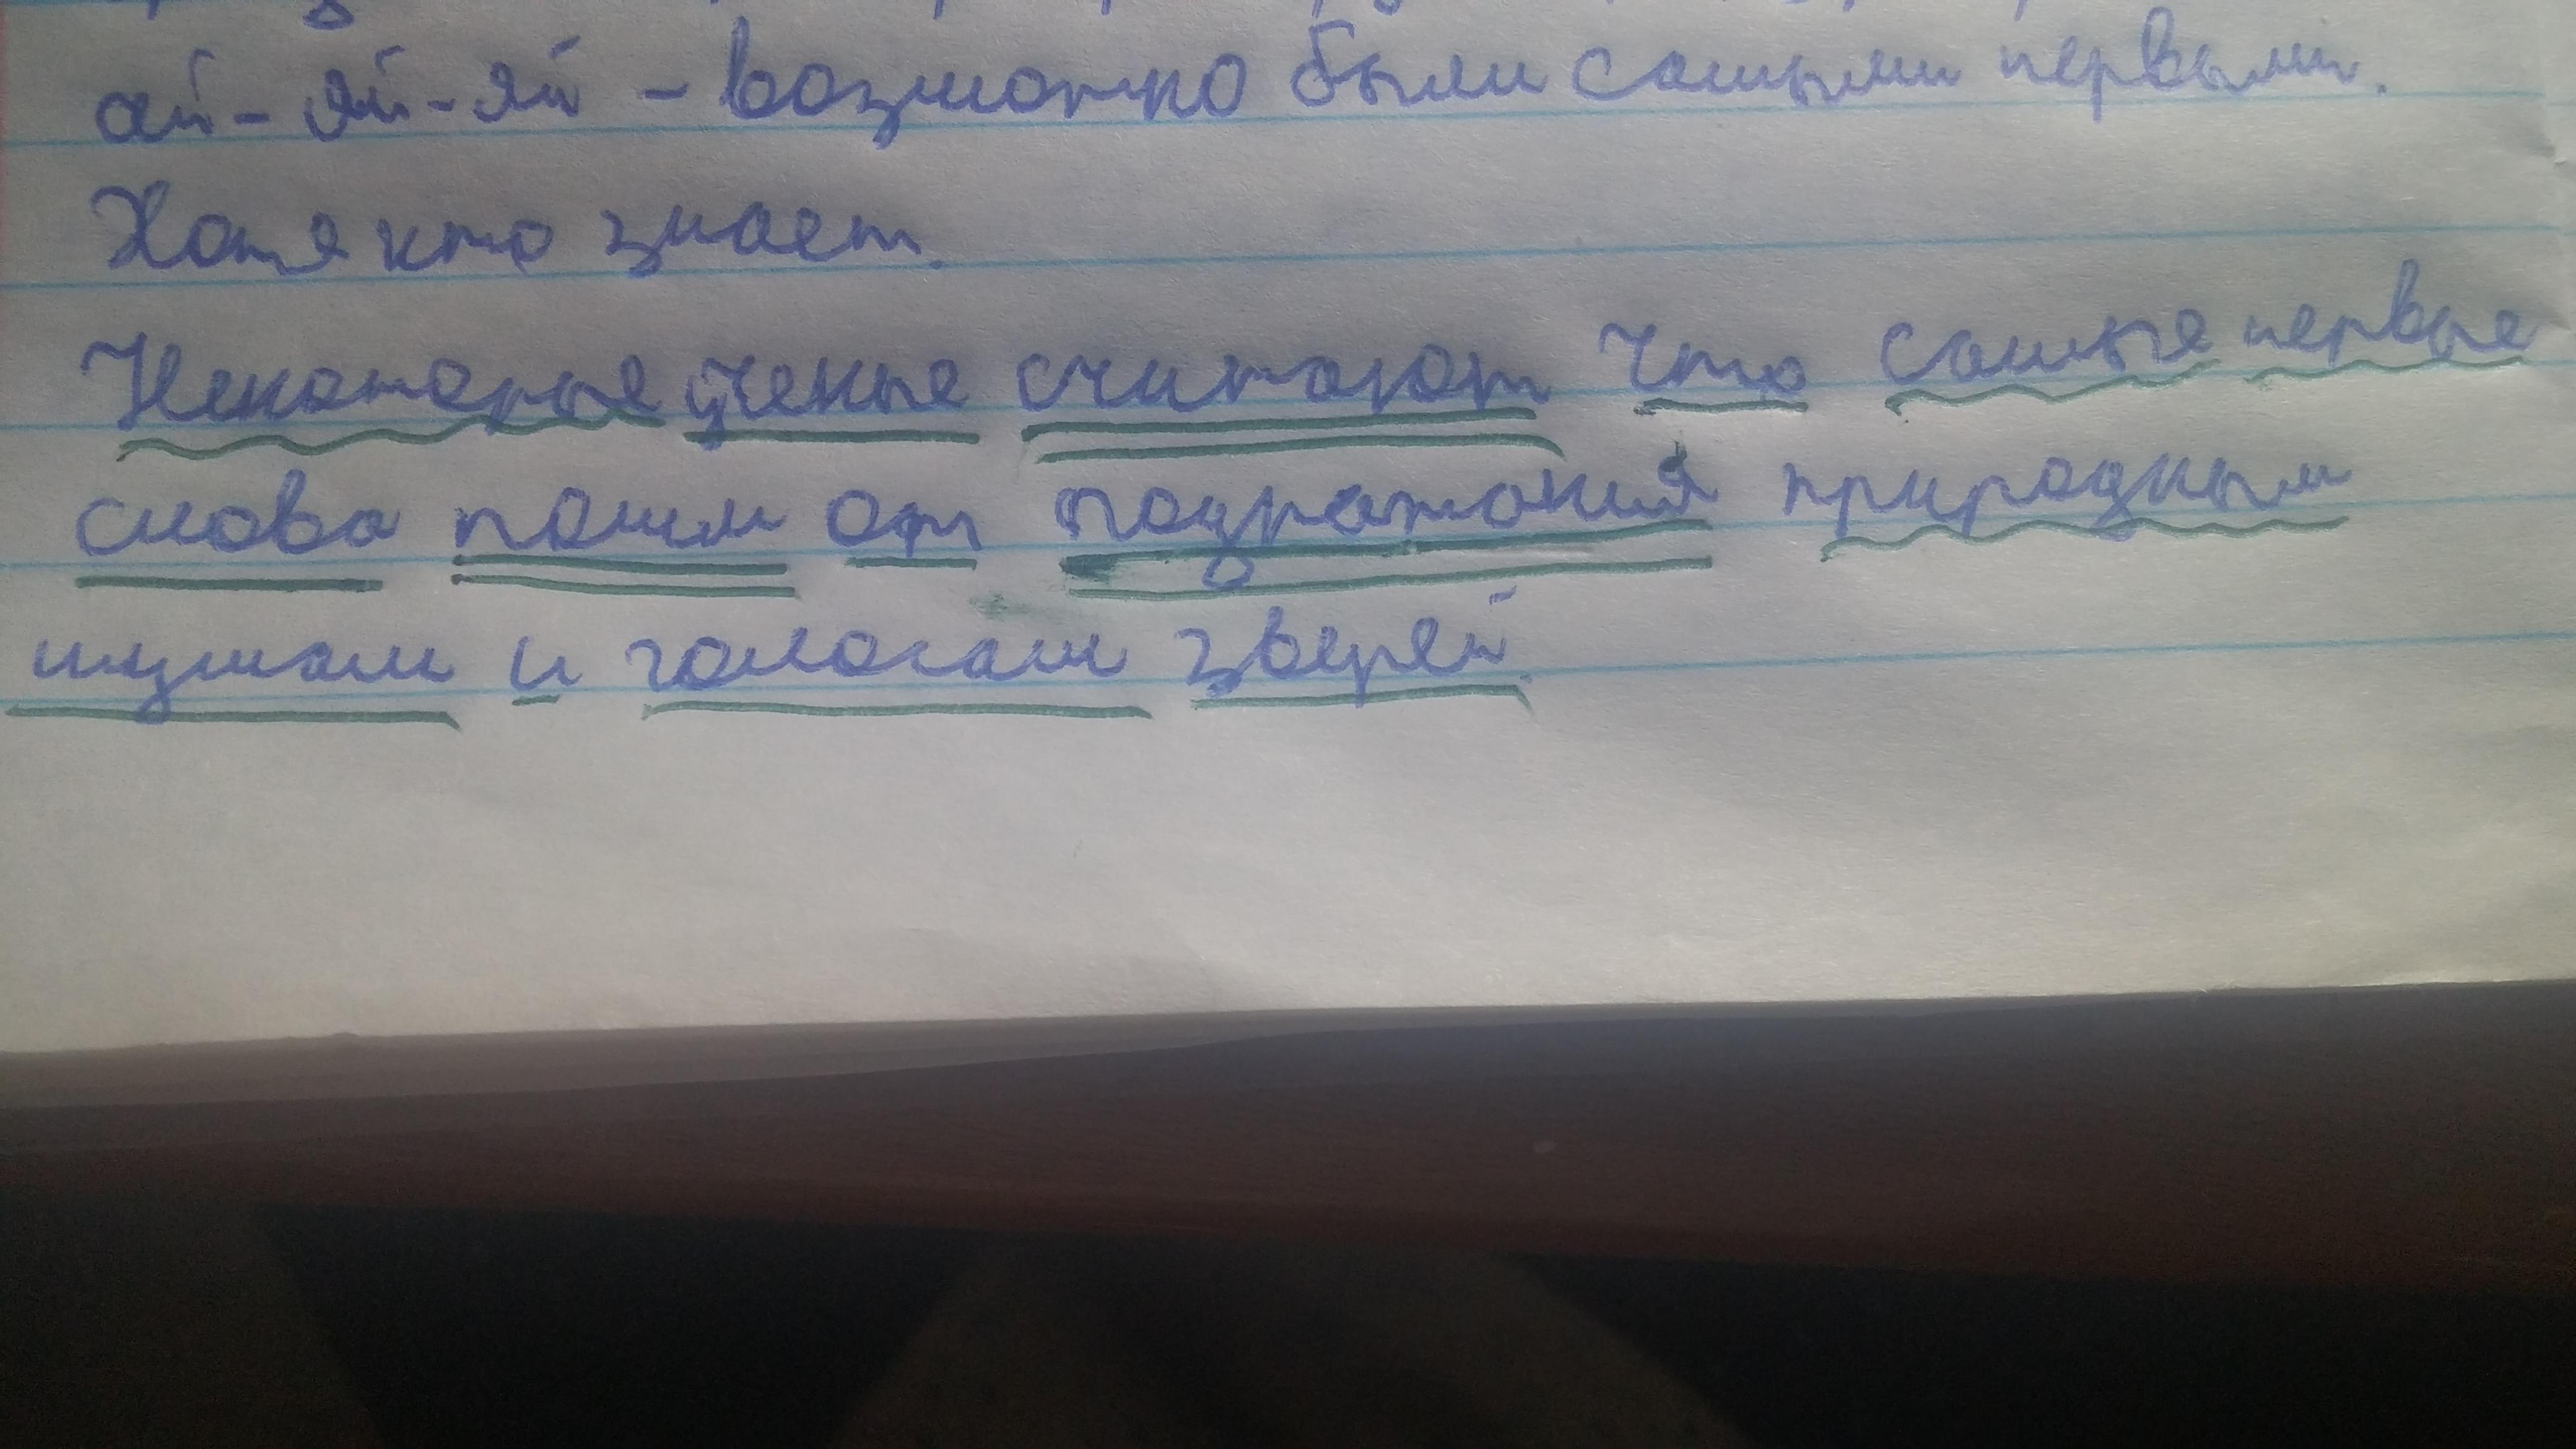 ай-яй-яй - возможно были самыми первыми.
Хотя кто знает.
Некоторые ученые считают что самые первые
слова пошли от подражания природным
шумам и голосам зверей.